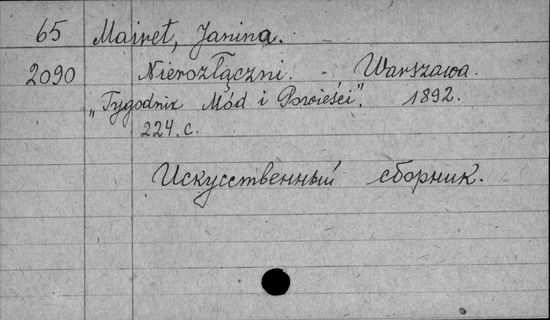 65 Mairet, Janina.
2090 Nierozłączni. Warszawa.
„Tygodnik Mód i Powieści”, 1892.
224. c.
Искусственный сборник.